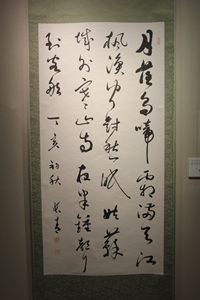 月落烏啼霜滿天江
楓漁火對愁眠姑蘇
城外寒山寺夜半鐘聲
到客船 丁亥初秋